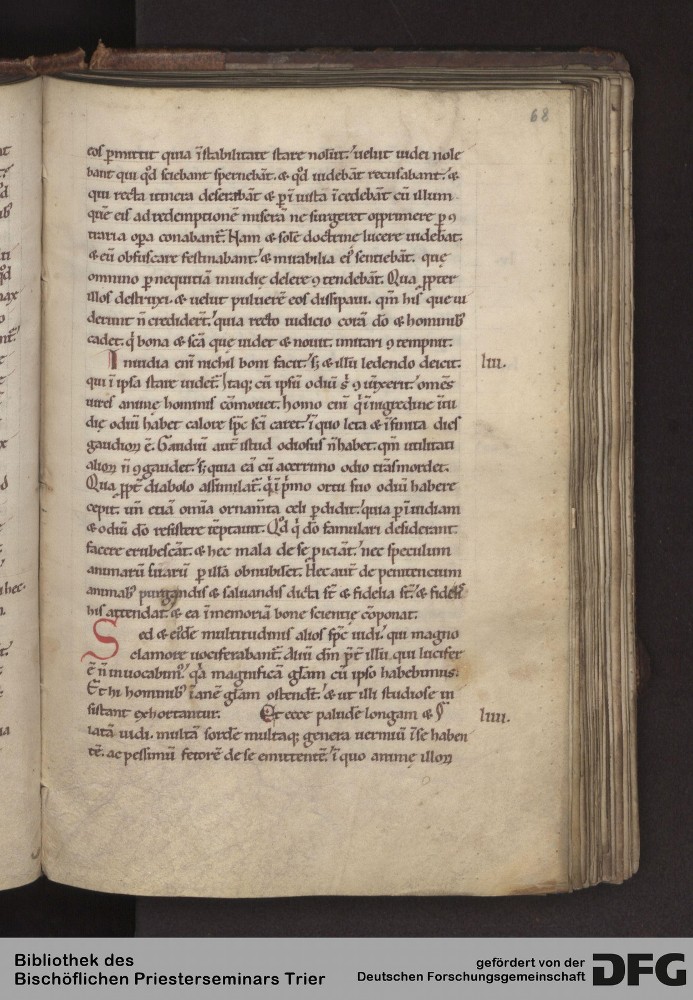 68
eos ꝑmittit quia ĩstabilitate stare nolũt. uelut uidei nole
bant qui qd̃ sciebant spernebãt. & qd̃ uidebãt recusabant. &
qui recta itinera deserebãt & ꝑ ĩiusta ĩcedebãt cũ illum
quẽ eis ad redemptionẽ miserã ne surgeret opprimere ꝑ ꝯ
traria oꝑa conabant̃. Nam & solẽ doctrine lucere uidebãt.
& eũ obfuscare festinabant. & mirabilia ei᷒ sentiebãt. quę
omnino ꝑ nequitiam inuidię delere ꝯtendebãt. Qua ꝓpter
illos destruxi. & uelut puluerẽ eos dissipaui. qm̃ his que ui
derunt ñ credidert̃. quia recto iudicio corã dõ & hominib᷒
cadet. q̇ bona & scã que uidet & nouit. imitari ꝯtempnit.
Inuidia eni᷒ nichil boni facit. s; & illũ ledendo deicit.
liii.
qui ĩ ipsa stare uidet̃. Itaq; cũ ipsũ odiũ s̃ ꝯiũxerit. omẽs
uires animę hominis cõmouet. homo eni᷒ q̇ ĩ ingredine ĩui
dię odiũ habet calore spc̃ sc̃i caret. ĩ quo leta & ĩfinita dies
gaudioꝝ ẽ. Gaudiũ aut̃ istud odiosus ñ habet. qm̃ utilitati
alioꝝ ñ ꝯgaudet. s; quia eã cũ acerrimo odio trãsmordet.
Qua ꝓpt̃ diabolo assimilat̃. q̇ ĩ p̃mo ortu suo odiũ habere
cepit. uñ etiã om̃ia ornam̃ta celi ꝑdidit. quia ꝑ ĩuidiam
& odiũ dõ resistere tẽptauit. Qd̃ q̇ dõ famulari desiderant.
facere erubescãt. & hec mala de se ꝓiciãt. nec speculum
animarũ suarũ ꝑ illã obnubilet̃. Hec aut̃ de penitencium
animab᷒ purgandis & saluandis dicta st̃ & fidelia st̃. & fidel᷒
his attendat. & ea ĩ memoriã bone scientię cõponat.
Sed & eiꝰdẽ multitudinis alios spc̃ uidi. qui magno
clamore uociferabant̃. Aliũ dm̃ p̃t̃ illũ. qui lucifer
ẽ ñ inuocabim᷒. q̃a magnificã gl̃am cũ ipso habebimus.
Et hi hominib᷒ ĩanẽ gl̃am ostendt̃. & ut illi studiose in
sistant exhortantur. Et ecce paludẽ longam &
liiii.
latã uidi. multã sordẽ multaq; genera uermiũ ĩ se haben
tẽ. ac pessimũ fetorẽ de se emittentẽ. ĩ quo animę illoꝝ
Bibliothek des
Bischöflichen Priesterseminars Trier
gefördert von der
Deutschen Forschungsgemeinschaft
DFG